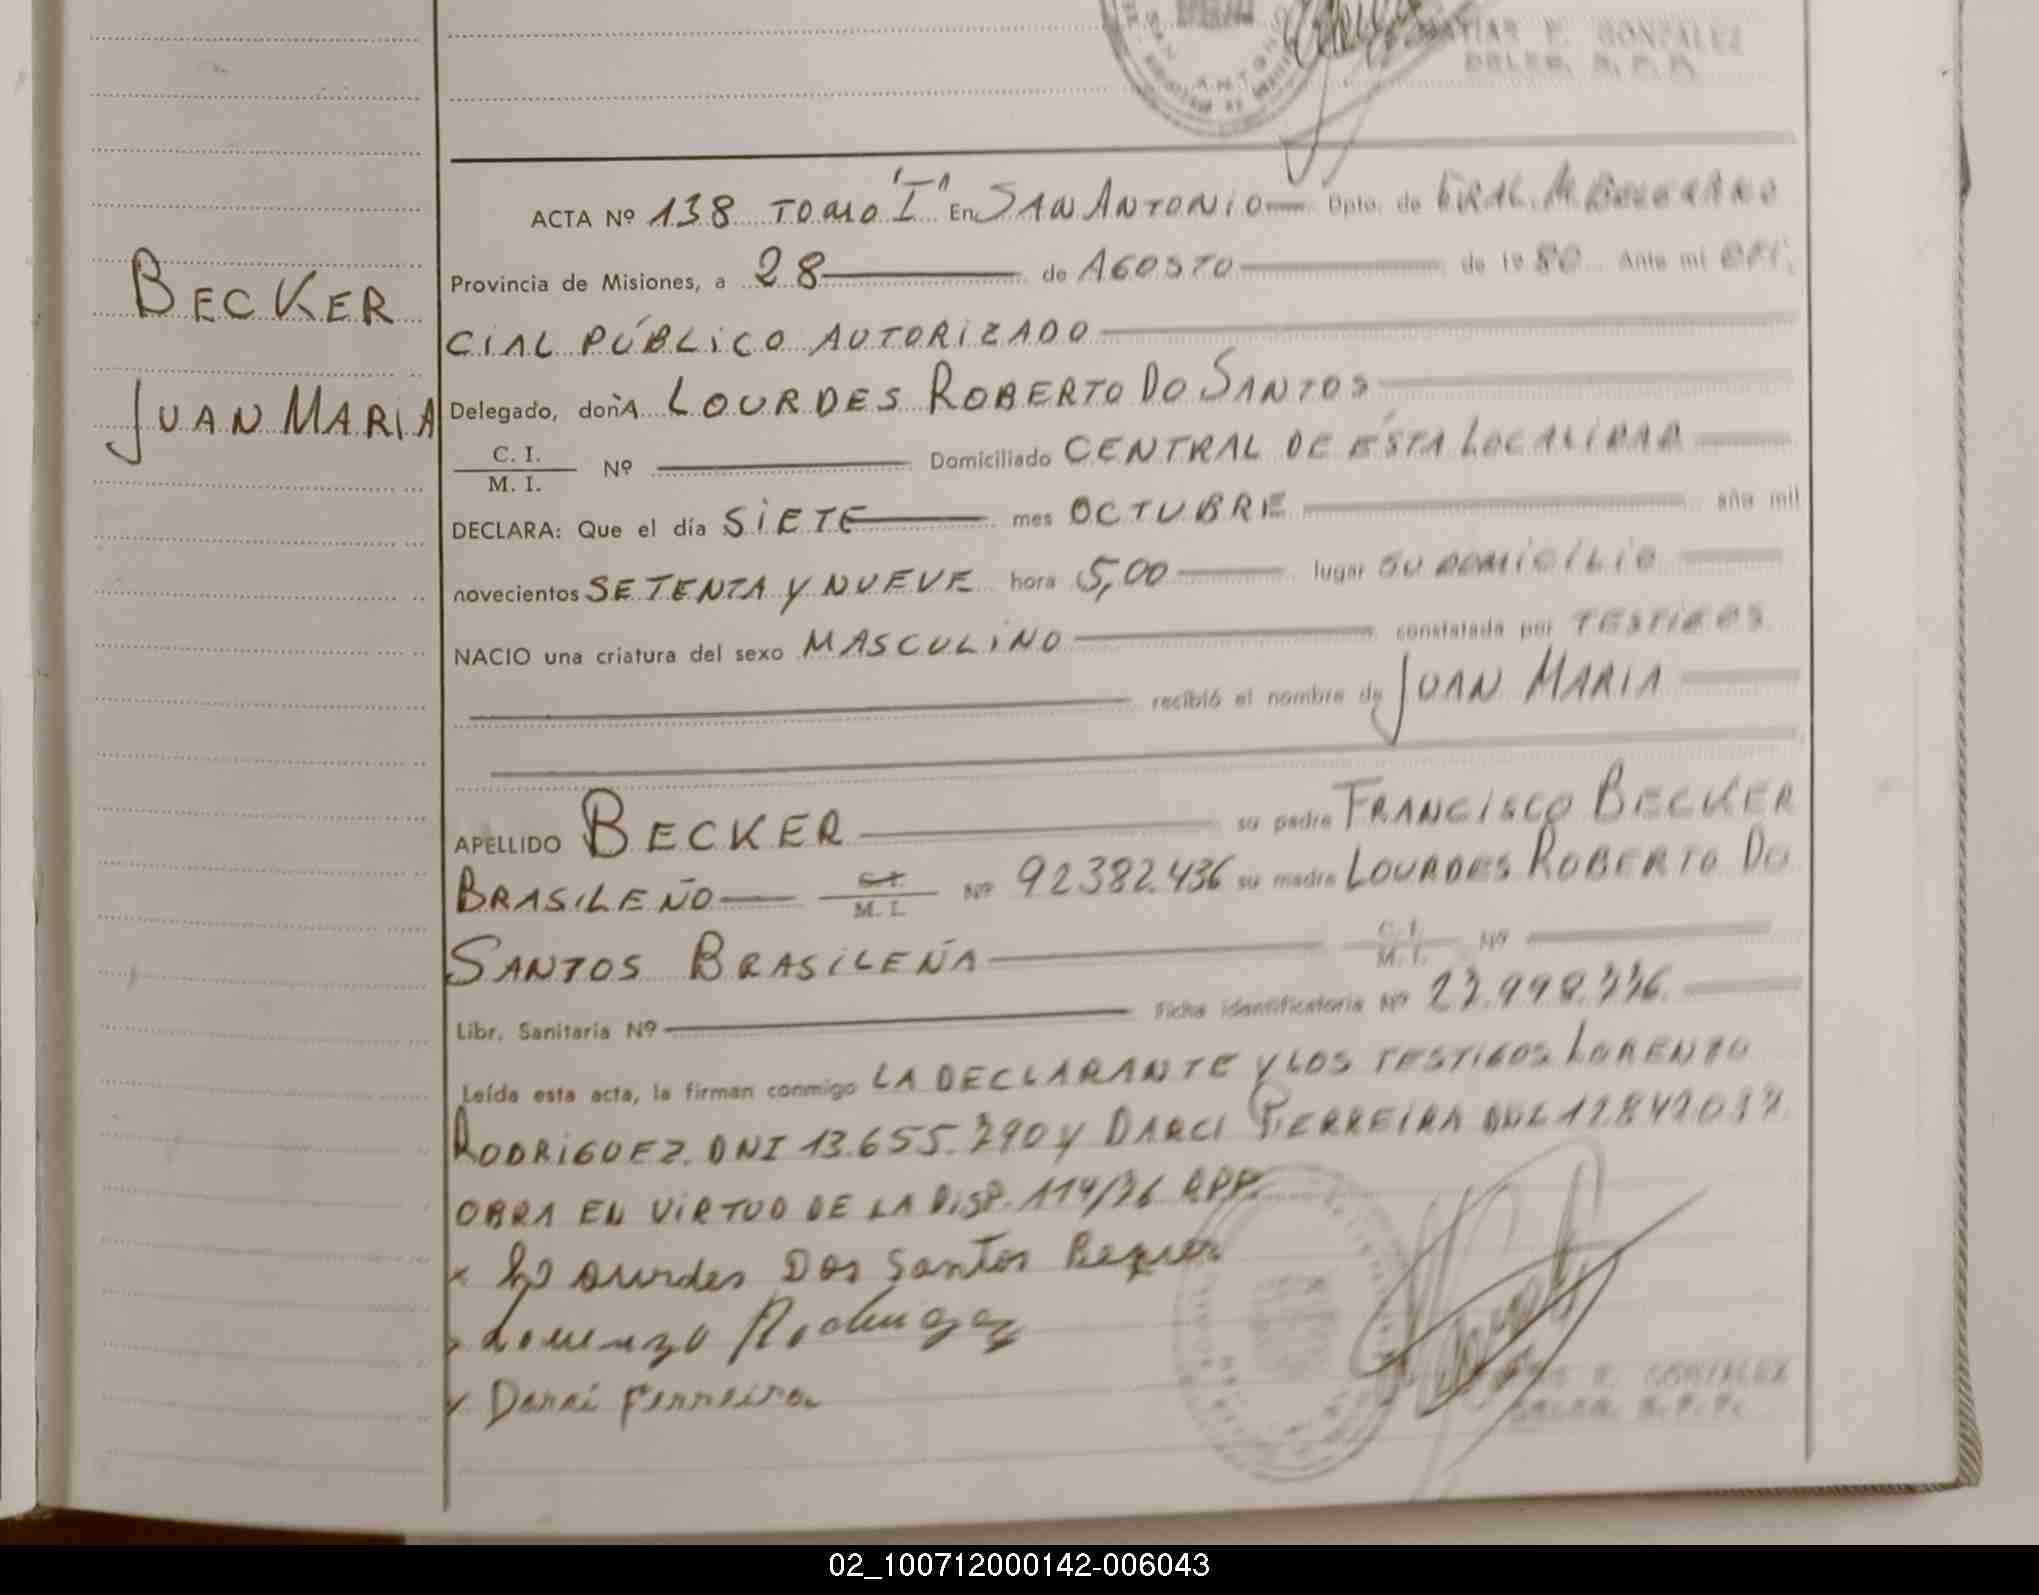 MATIAS E. GONZALEZ
DELEG. R. P. P.
ACTA Nº 138 TOMO "I" En SAN ANTONIO Dpto. de GRAL. M. BELGRANO
Provincia de Misiones, a 28 de AGOSTO de 1980 Ante mi OFI.
CIAL PÚBLICO AUTORIZADO
BECKER
JUAN MARIA
Delegado, doñA LOURDES ROBERTO DO SANTOS
C. I.
M. I. Nº Domiciliado CENTRAL DE ÉSTA LOCALIDAD
DECLARA: Que el día SIETE mes OCTUBRE año mil
novecientos SETENTA Y NUEVE hora 5,00 lugar SU DOMICILIO
NACIO una criatura del sexo MASCULINO constatada por TESTIGOS
recibió el nombre de JUAN MARIA
APELLIDO BECKER su padre FRANCISCO BECKER
BRASILEÑO C.I. M. I. Nº 92382.436 su madre LOURDES ROBERTO DO
SANTOS BRASILEÑA C. I. M. I. Nº
Libr. Sanitaria Nº Ficha identificatoria Nº
Leída esta acta, la firman conmigo LA DECLARANTE Y LOS TESTIGOS LORENZO
RODRIGUEZ. DNI 13.655.290 Y DARCI FERREIRA DNI
OBRA EN VIRTUD DE LA DISP. 114/76 RPP.
x Lourdes Dos Santos Bequer
x Lorenzo Rodriguez
x Darci Ferreira
E. GONZALEZ
DELEG. R. P. P.
02_100712000142-006043